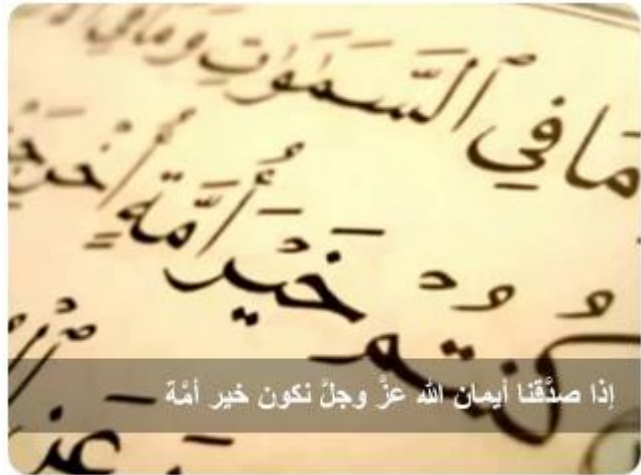 مَا فِي ٱلسَّمَٰوَٰتِ وَمَا فِي
كُنتُمْ خَيْرَ أُمَّةٍ أُخْرِجَ
إذا صدَّقنا أيمان الله عزَّ وجلَّ نكون خير أمَّة